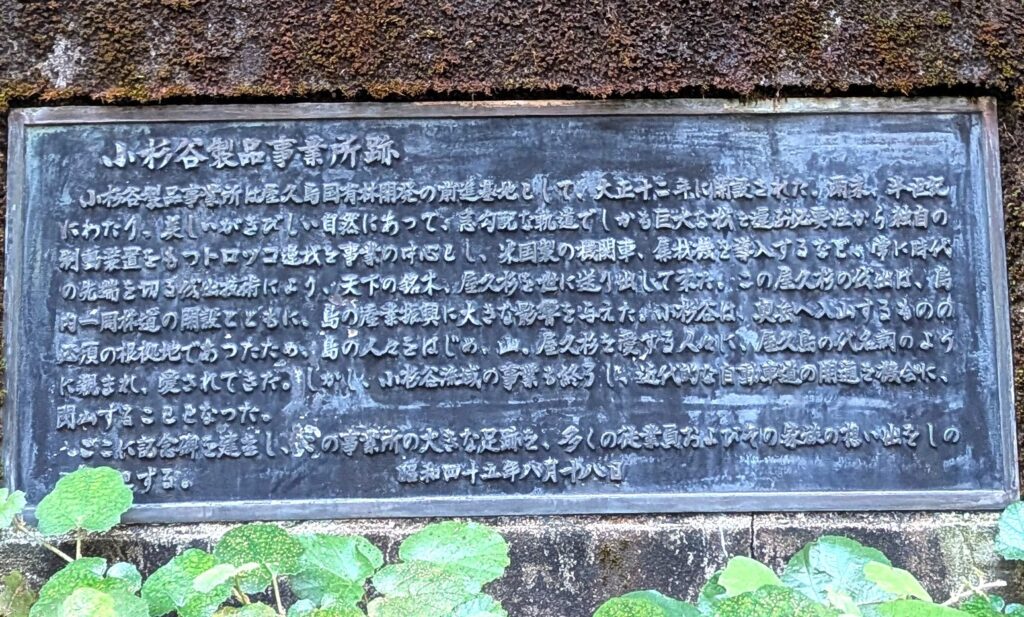 小杉谷製品事業所跡
小杉谷製品事業所は屋久島国有林開発の前進基地として、大正十二年に開設された。爾来、半世紀
にわたり、美しいがきびしい自然にあって、急勾配な軌道でしかも巨大な材を運ぶ必要性から独自の
制動装置をもつトロッコ運材を事業の中心とし、米国製の機関車、集材機を導入するなど、常に時代
の先端を切る伐出技術により、天下の銘木、屋久杉を世に送り出して来た。この屋久杉の伐出は、島
内一周林道の開設とともに、島の産業振興に大きな影響を与えた。小杉谷は、奥岳へ入山するものの
必須の根拠地であったため、島の人々をはじめ、山、屋久杉を愛する人々に、屋久島の代名詞のよう
に親まれ、愛されてきた。しかし、小杉谷流域の事業も終了し、近代的な自動車道の開通を機会に、
閉山することとなった。
ここに記念碑を建立し、この事業所の大きな足跡と、多くの従業員およびその家族の想い出をしの
する。
昭和四十五年八月十八日